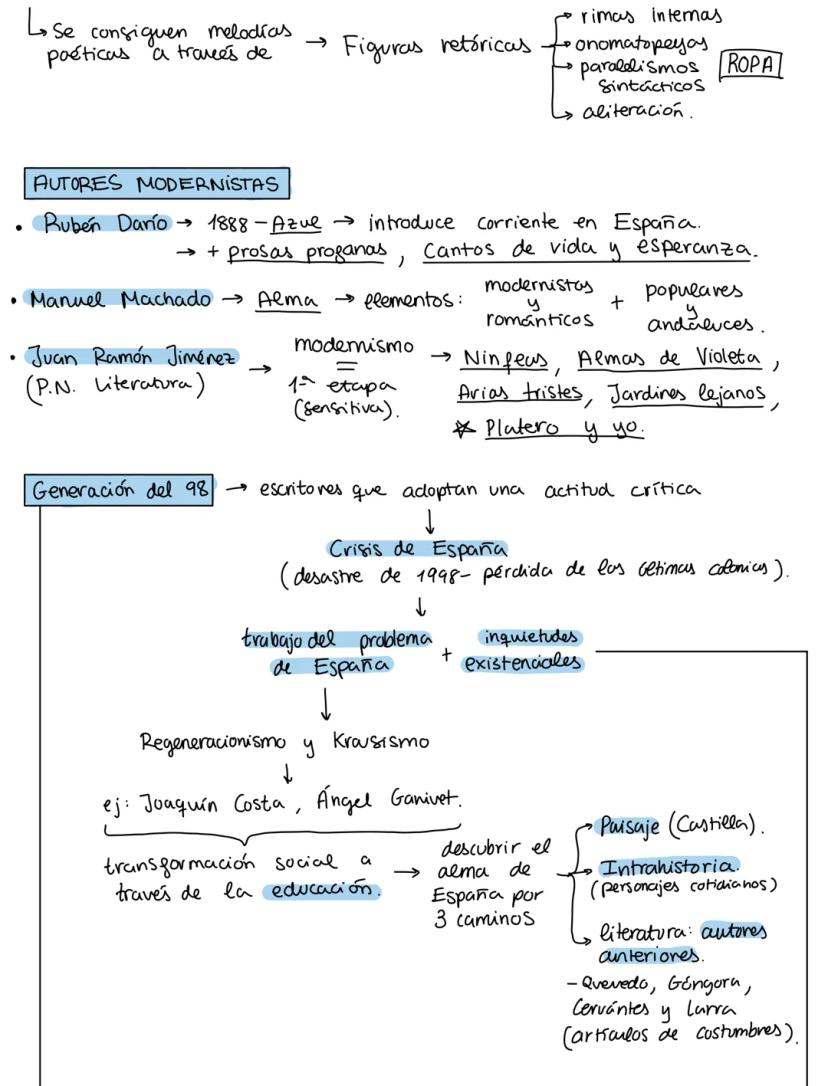 ↳ Se consiguen melodías
poéticas a través de → Figuras retóricas
→ rimas internas
→ onomatopeyas
→ paralelismos
sintácticos
ROPA
→ aliteración.
AUTORES MODERNISTAS
• Rubén Darío → 1888 - Azul → introduce corriente en España.
→ + prosas profanas, Cantos de vida y esperanza.
• Manuel Machado → Alma → elementos: modernistas y románticos + populares y andaluces.
• Juan Ramón Jiménez
(P.N. Literatura) →
modernismo
=
1ª etapa
(sensitiva).
→ Ninfeas, Almas de Violeta,
Arias tristes, Jardines lejanos,
* Platero y yo.
Generación del 98 → escritores que adoptan una actitud crítica
↓
Crisis de España
(desastre de 1998 - pérdida de las últimas colonias).
↓
trabajo del problema
de España
+
inquietudes
existenciales
↓
Regeneracionismo y Krausismo
↓
ej: Joaquín Costa, Ángel Ganivet.
transformación social a
través de la educación.
→
descubrir el
alma de
España por
3 caminos
→ Paisaje (Castilla).
→ Intrahistoria.
(personajes cotidianos)
→ literatura: autores
anteriores.
- Quevedo, Góngora,
Cervántes y Larra
(artículos de costumbres).